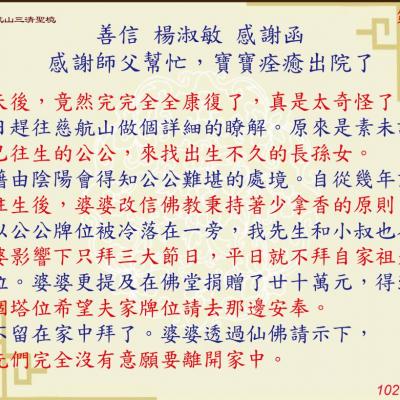 山三清聖境
善信 楊淑敏 感謝函
感謝師父幫忙，寶寶痊癒出院了
天後，竟然完完全全康復了，真是太奇怪了
日趕往慈航山做個詳細的瞭解。原來是素未
已往生的公公，來找出生不久的長孫女。
藉由陰陽會得知公公難堪的處境。自從幾年
往生後，婆婆改信佛教秉持著少拿香的原則
以公公牌位被冷落在一旁，我先生和小叔也
婆影響下只拜三大節日，平日就不拜自家祖
位。婆婆更提及在佛堂捐贈了廿十萬元，得
個塔位希望夫家牌位請去那邊安奉。
不留在家中拜了。婆婆透過仙佛請示下，
先們完全沒有意願要離開家中。
102